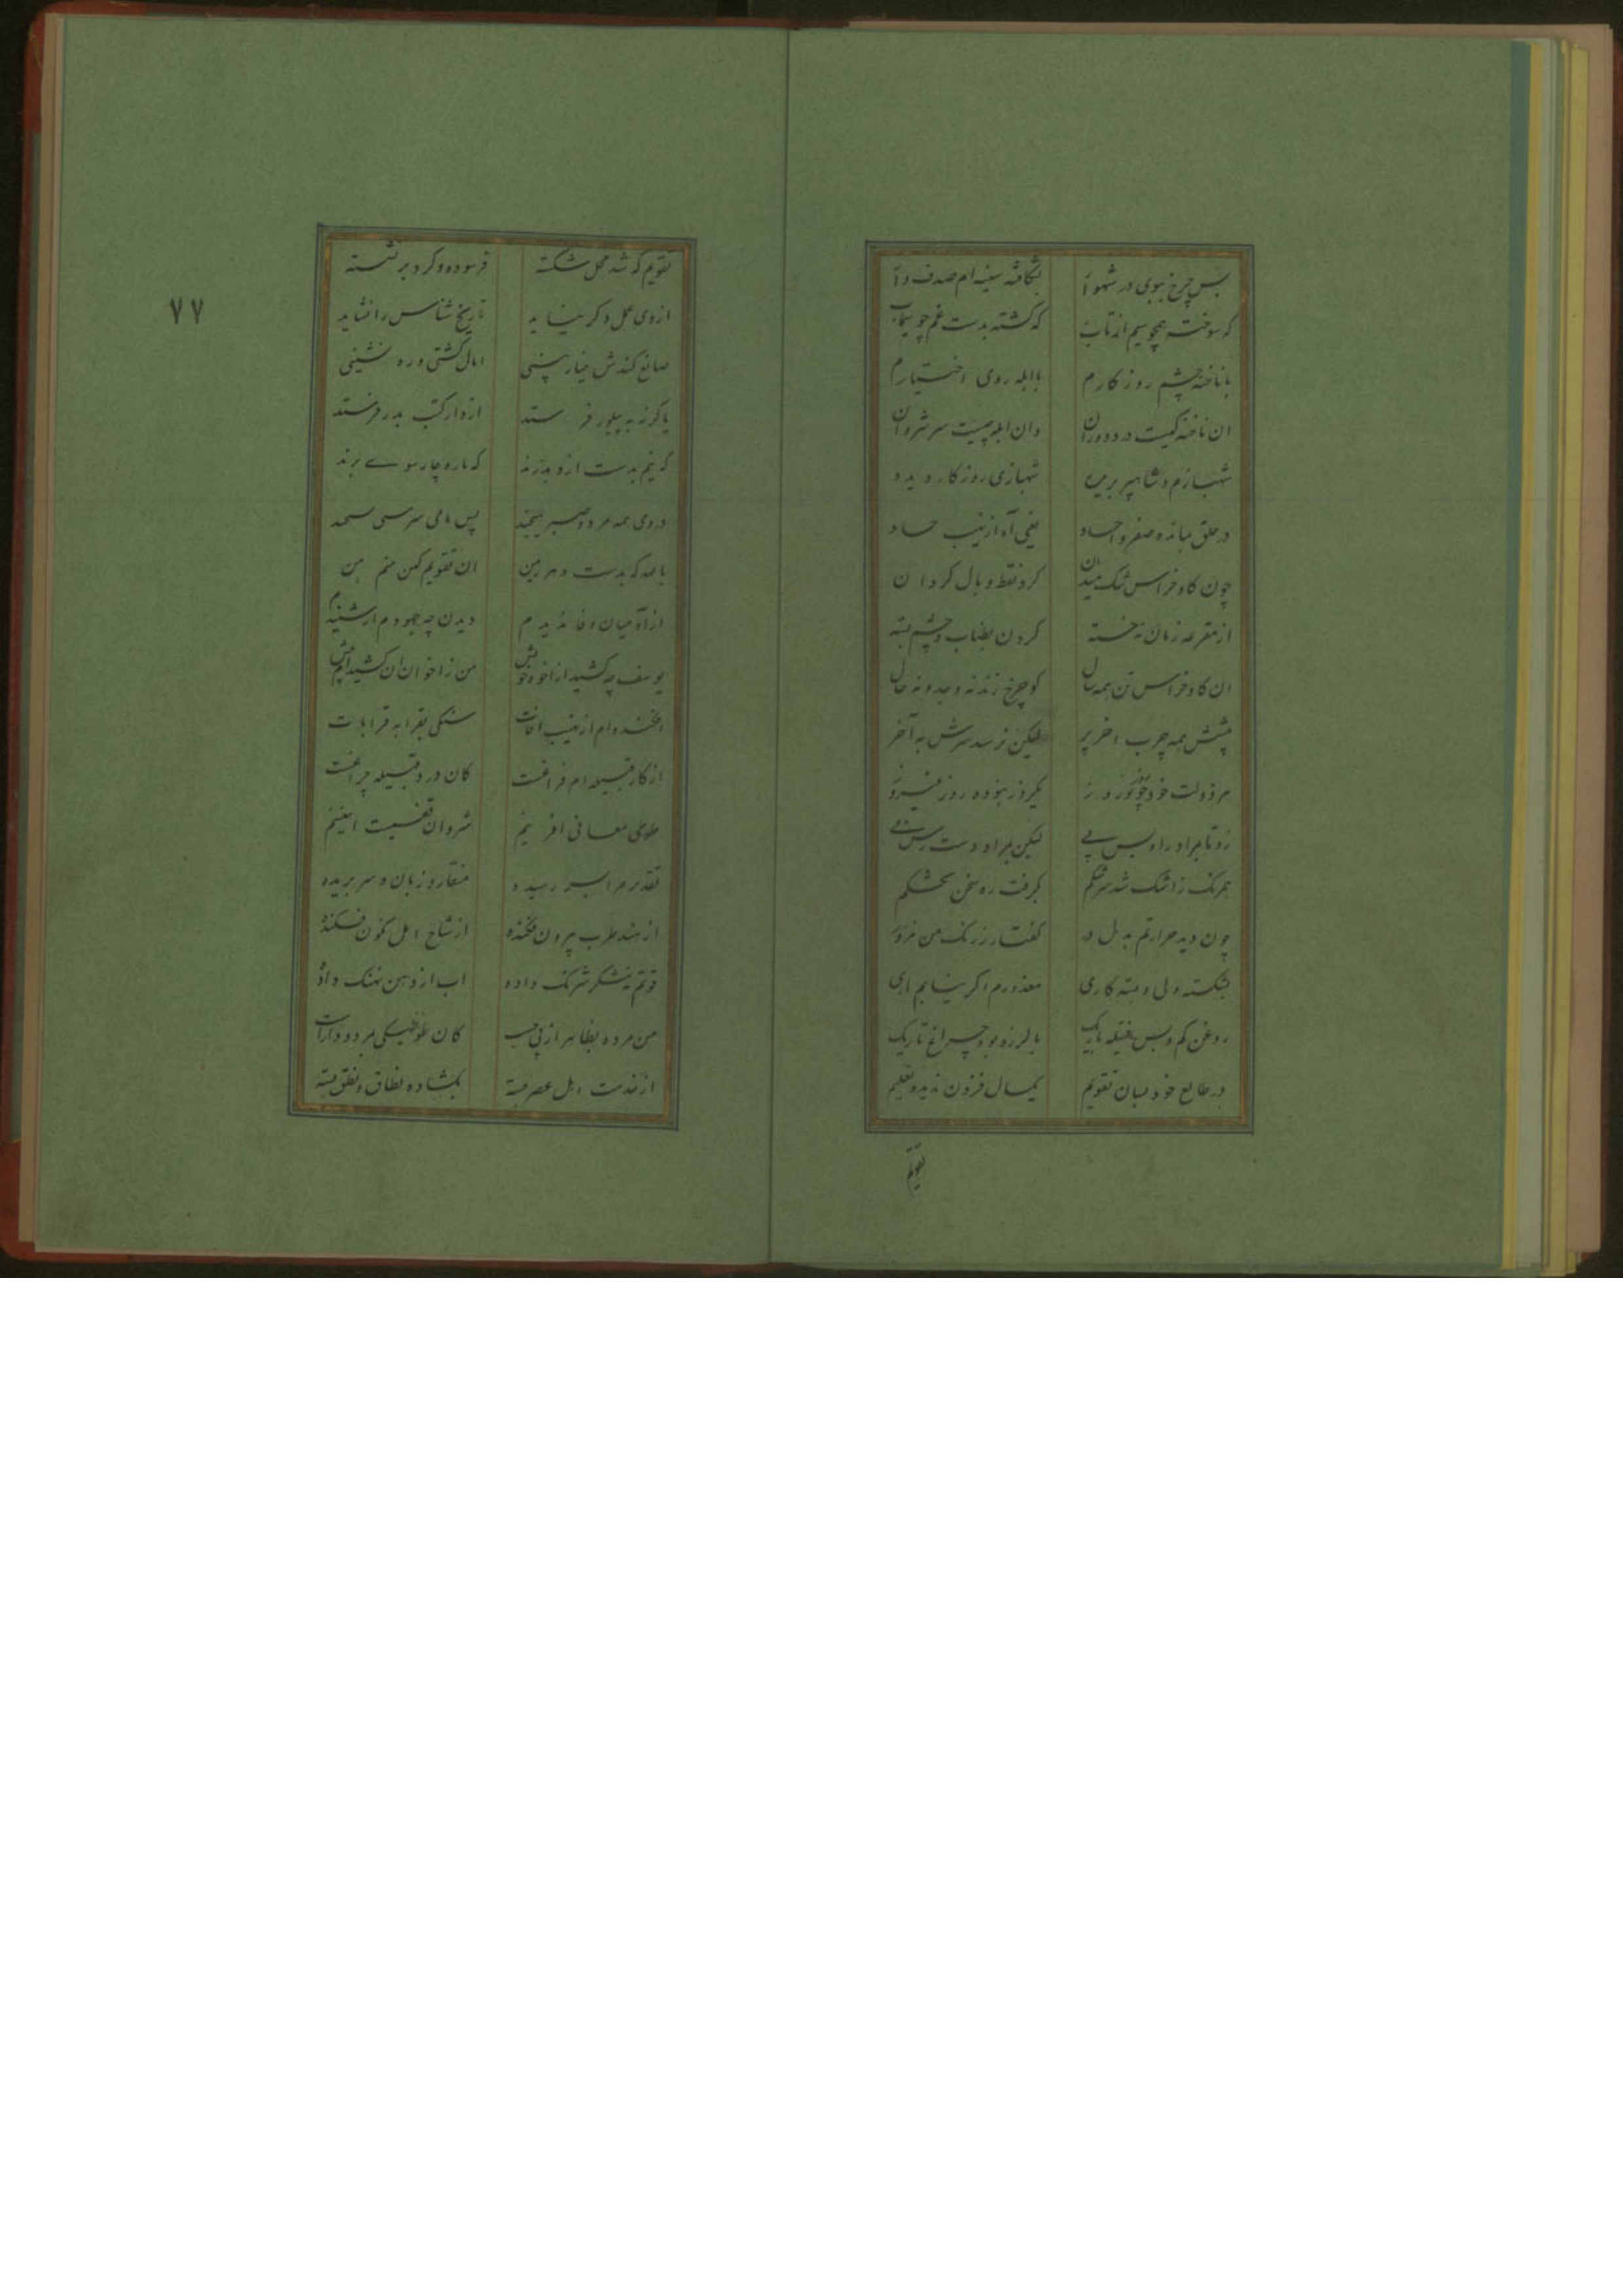 بس چرخ ببوی در شهوار بشکافته سینه ام صدف وار
که سوخت همچو سیم از تاب که کشته بدست غم چو سیماب
با ناخنه چشم روزکارم باابله روی اختیارم
ان ناخنه کیست در دوران وان ابله چیست سر شروان
شهبازم و شاهپر بریده شهبازی روزکار دیده
در حلق بمانده صفر و احساد یعنی آه از نهیب حساد
چون کاو خراس تنک میدان کرد نقط وبال کردان
از مقرعه زمانه خسته کردن بطناب و چشم بسته
ان کاو خراس بین همه سال کو چرخ زند نه وجد و نه حال
پشتش همه چرب اخر پر لیکن نرسد سرش به آخر
هر دولت خود چو نوروز یکروز نبوده روز فیروز
زو تا بمراد راه بس پی لیکن بمراد دست رس نی
همرنک زاشک شد سرشکم بکرفت ره سخن
چون دید حرارتم بدل در کفتار زرنک من
بشکسته دلی و بسته کاری معذورم اکر نیایم
روغن کم و بس فتیله باریک با لرزه بود چراغ تاریک
در طالع خود بسان تقویم یکسال فزون ندیده تعلیم
تقویم
٧٧
تقویم که شد محل شکسته فرسوده و کرد بر نشسته
از وی عمل دکر نیاید تاریخ شناس را نشاید
صانع کندش میاز پنبی امال کشتی و ره نشینی
یا کرنه به پیلور فرستد ازاد کتب بدر فرستد
که نیم بدست ازو بدرند که پاره چارسوے برند
در وی همه مرد و صبر بیخند پس
بالله که بدست دهر ان تقویم کهن منم من
ازآه میان وفا ندیدم دیدن چه جهودم ار شنیدم
یوسف چه کشید از اخوه خویش من زاخوان ان کشیده ام بیش
افکنده ام از نهیب افات سنکی بقرابه قرابات
از کار قبیله ام فراغست کان درد قبیله چراغست
طوطی معانی افرینم شروان قفسیست اهنینم
تقدیر مرا رسیده منقار و زبان و سر بریده
از هند طرب برون فکنده از شاخ امل نکون فکنده
قوتم نه شکر شرنک داده اب از دهن نهنک داده
من مرده بظاهر از پی جست کان طوطیکی مرده وارست
از خدمت اهل عصر جسته بکشاده نطاق و نطق بسته